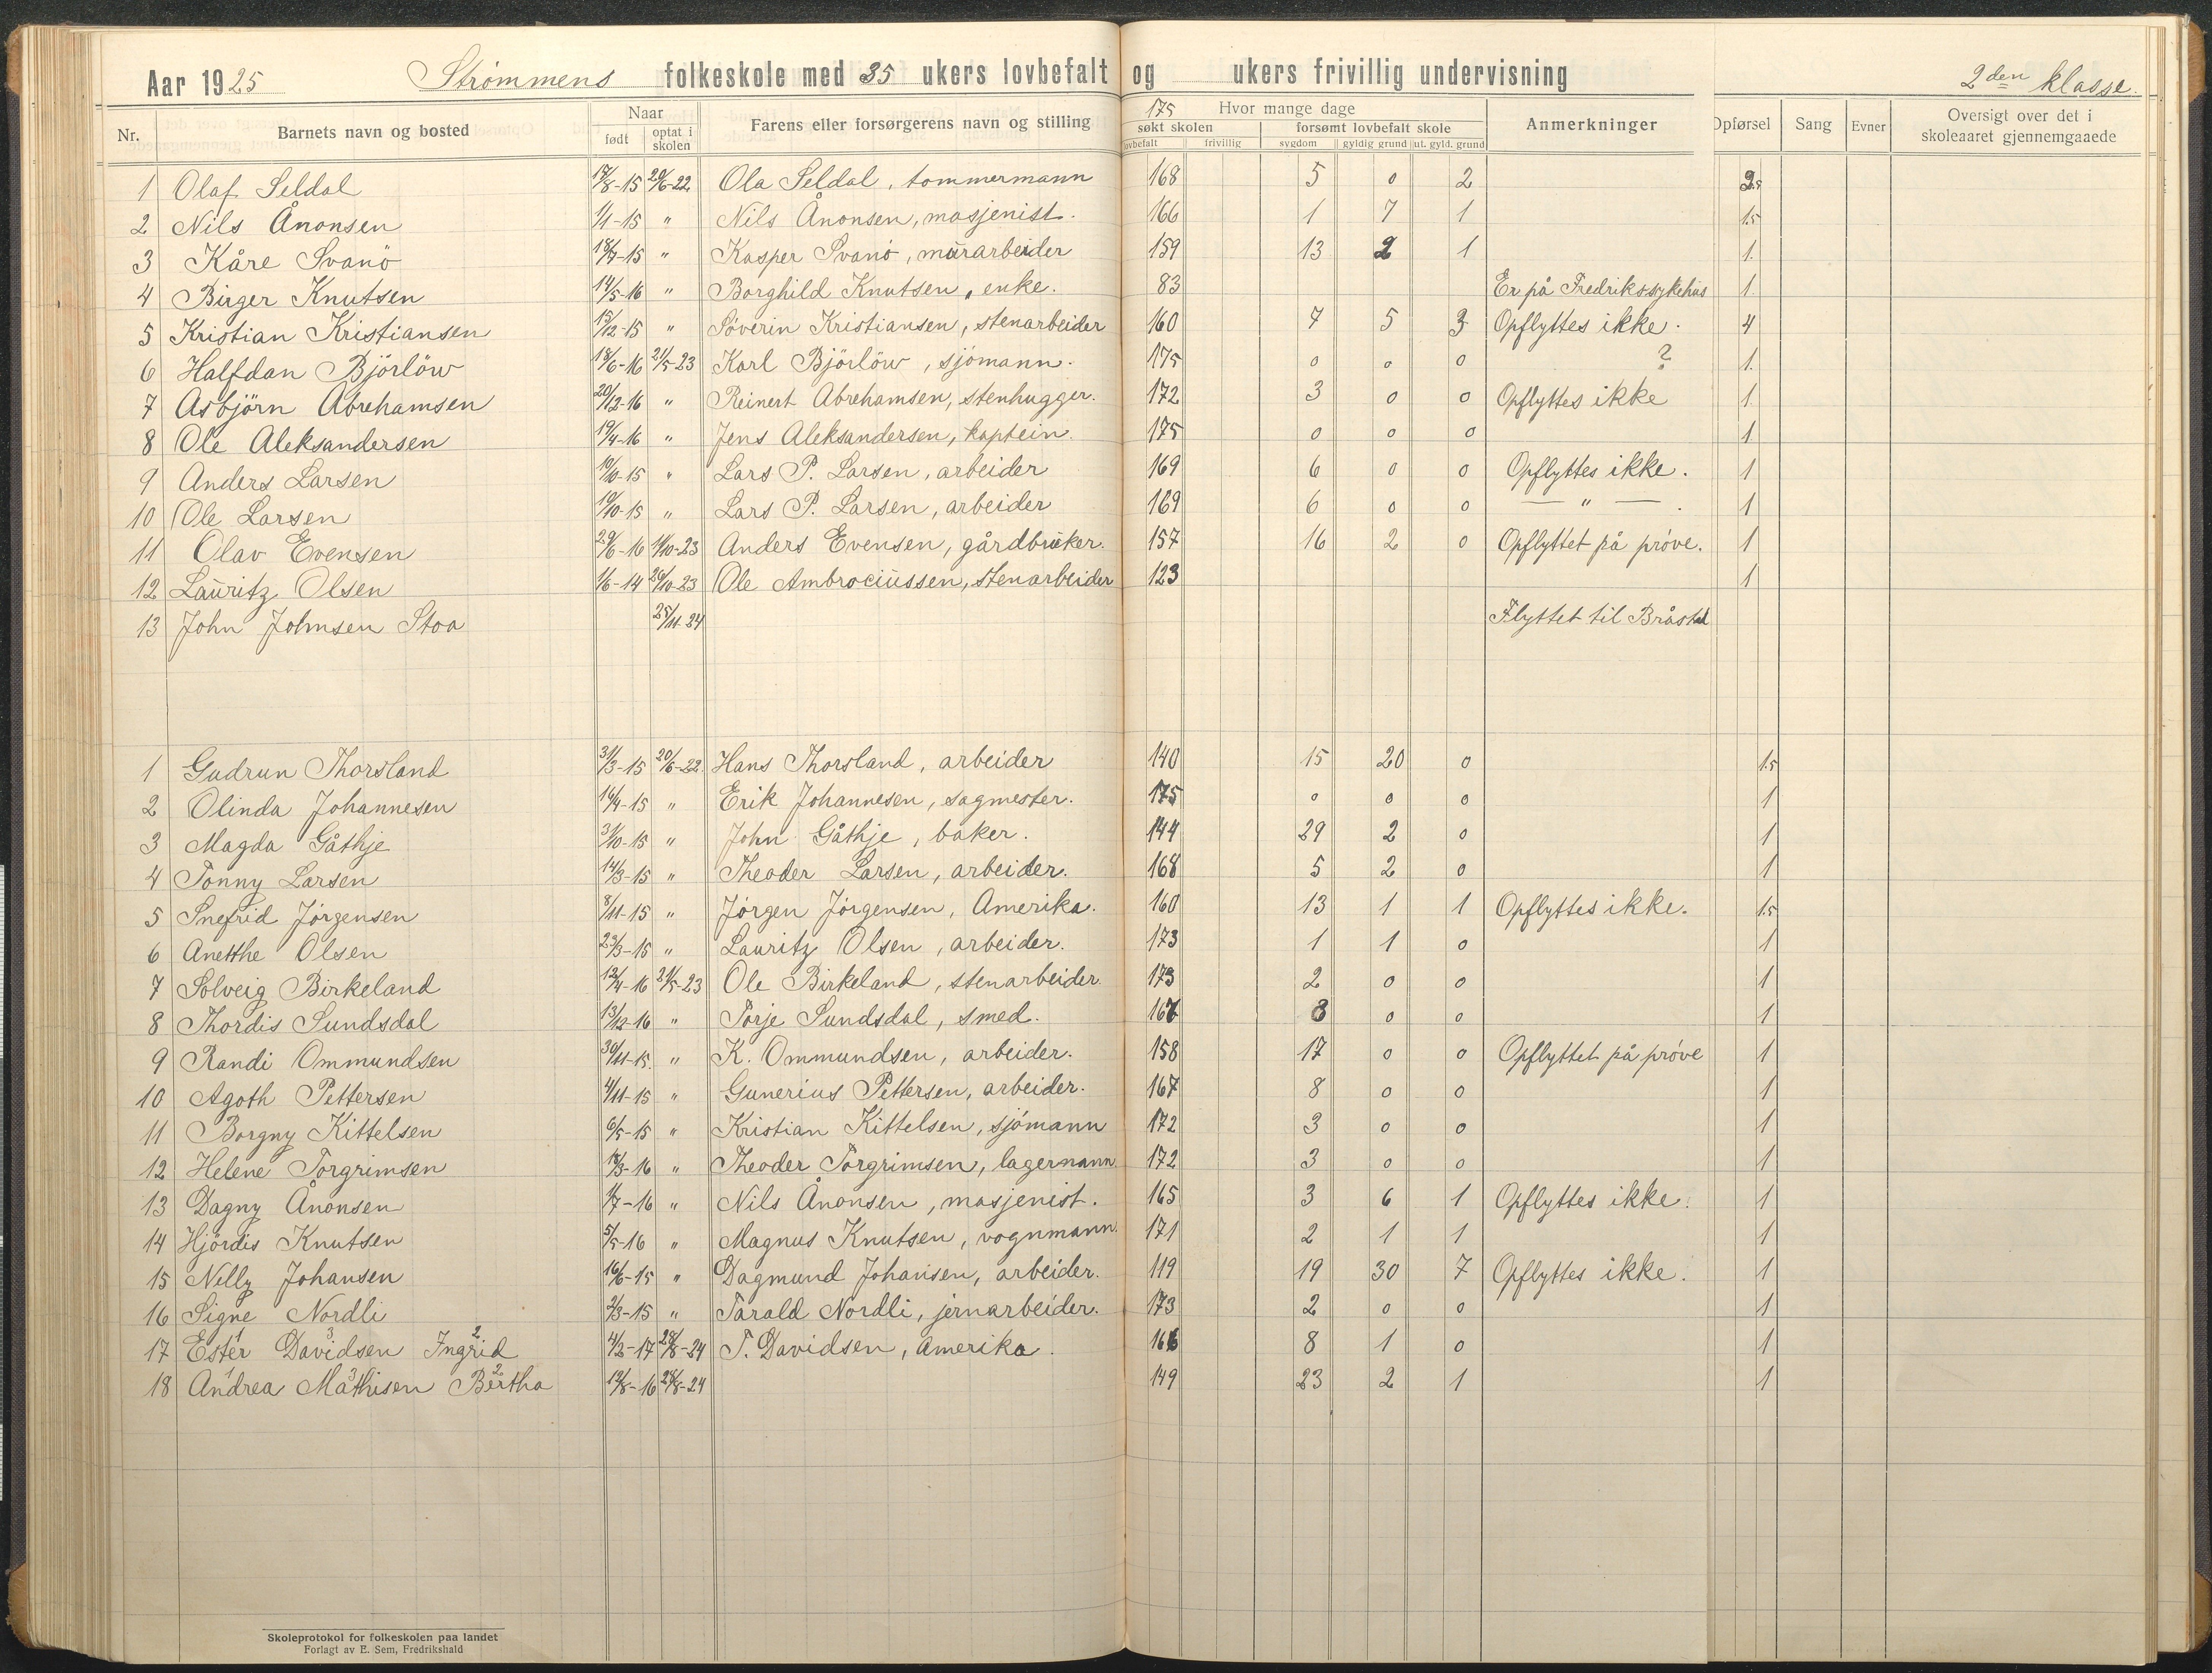 Aar 1925 Strømmens folkeskole med 35 ukers lovbefalt og ukers frivillig undervisning 2den klasse.
Nr. Barnets navn og bosted Naar født optat i skolen Farens eller forsørgerens navn og stilling 175 Hvor mange dage søkt skolen lovbefalt frivillig forsømt lovbefalt skole sygdom gyldig grund ut. gyld. grund Anmerkninger Opførsel Sang Evner Oversigt over det i skoleaaret gjennemgaaede
1 Olaf Seldal 17/8-15 20/6-22 Ola Seldal, tømmermann 168 5 0 2
2 Nils Ånonsen 1/1-15 " Nils Ånonsen, masjenist. 166 1 7 1 1.5
3 Kåre Svanö 18/7-15 " Kasper Svanö, mürarbeider 159 13 2 1 1.
4 Birger Knutsen 14/5-16 " Borghild Knutsen, enke. 83 Er på Fredrikssykehus 1.
5 Kristian Kristiansen 15/12-15 " Söverin Kristiansen, stenarbeider 160 7 5 3 Opflyttes ikke. 4
6 Halfdan Björlöw 18/6-16 21/5-23 Karl Björlöw, sjömann. 175 0 0 0 ? 1.
7 Asbjörn Abrehamsen 20/12-16 " Reinert Abrehamsen, stenhugger. 172 3 0 0 Opflyttes ikke 1.
8 Ole Aleksandersen 19/4-16 " Jens Aleksandersen, kaptein. 175 0 0 0 1
9 Anders Larsen 10/10-15 " Lars P. Larsen, arbeider 169 6 0 0 Opflyttes ikke. 1
10 Ole Larsen 10/10-15 " Lars P. Larsen, arbeider 169 6 0 0 — " — . 1
11 Olav Evensen 29/6-16 1/10-23 Anders Evensen, gårdbrüker. 157 16 2 0 Opflyttet på pröve. 1
12 Laüritz Olsen 1/6-14 26/10-23 Ole Ambrociüssen, stenarbeider 123 1
13 John Johnsen Stoa 25/11-24 Flyttet til Bråstad
1 Gudrun Thorsland 31/3-15 20/6-22 Hans Thorsland, arbeider 140 15 20 0 1.5
2 Olinda Johannesen 16/4-15 " Erik Johannesen, sagmester. 175 0 0 0 1
3 Magda Gåthje 3/10-15 " John Gåthje, baker. 144 29 2 0 1
4 Tonny Larsen 14/3-15 " Theoder Larsen, arbeider. 168 5 2 0 1
5 Snefrid Jörgensen 8/11-15 " Jörgen Jörgensen, Amerika. 160 13 1 1 Opflyttes ikke. 1.5
6 Anetthe Olsen 23/3-15 " Lauritz Olsen, arbeider. 173 1 1 0 1
7 Solveig Birkeland 12/4-16 21/5-23 Ole Birkeland, stenarbeider. 173 2 0 0 1
8 Thordis Sundsdal 13/12-16 " Torje Sundsdal, smed. 167 8 0 0 1
9 Randi Ommundsen 30/11-15. " K. Ommundsen, arbeider. 158 17 0 0 Opflyttet på pröve 1
10 Agoth Pettersen 4/11-15 " Gunerius Pettersen, arbeider. 167 8 0 0 1
11 Borgny Kittelsen 6/5-15 " Kristian Kittelsen, sjömann 172 3 0 0 1
12 Helene Torgrimsen 18/3-16 " Theoder Torgrimsen, lagermann. 172 3 0 0 1
13 Dagny Ånonsen 1/7-16 " Nils Ånonsen, masjenist. 165 3 6 1 Opflyttes ikke. 1
14 Hjördis Knutsen 5/5-16 " Magnus Knutsen, vognmann. 171 2 1 1 1
15 Nelly Johansen 16/6-15 " Dagmund Johansen, arbeider. 119 19 30 7 Opflyttes ikke. 1
16 Signe Nordli 2/3-15 " Tarald Nordli, jernarbeider. 173 2 0 0 1
17 Ester 1 Davidsen 3 Ingrid 2 4/2-17 28/8-24 T. Davidsen, Amerika. 166 8 1 0 1
18 Andrea 1 Mathisen 3 Bertha 2 12/8-16 28/8-24 149 23 2 1 1
Skoleprotokol for folkeskolen paa landet
Forlagt av E. Sem, Fredrikshald